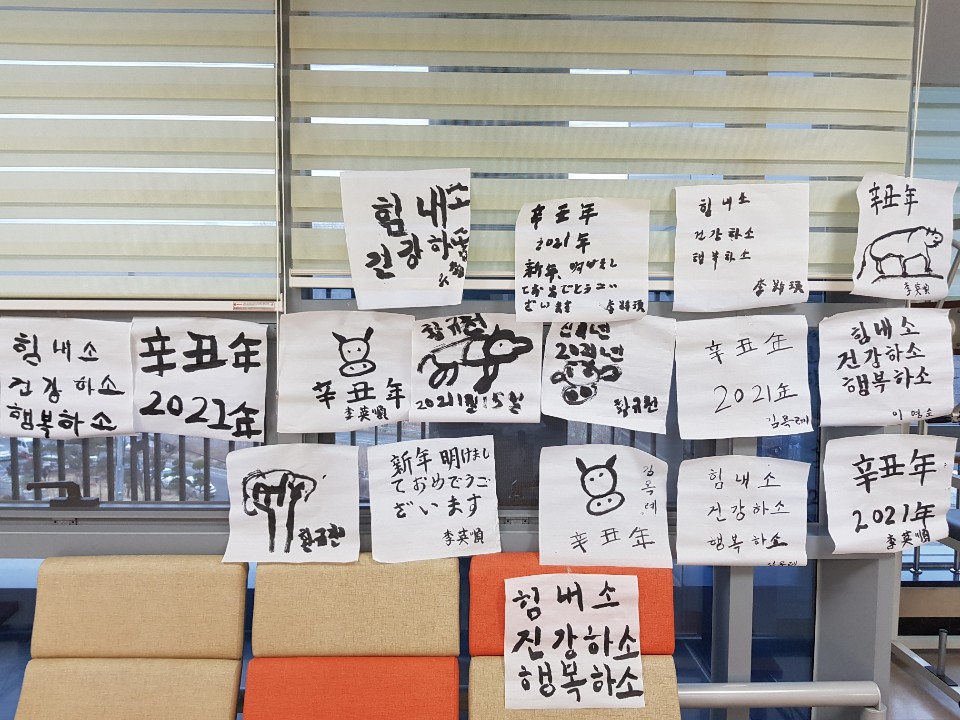 힘내소
건강하소
辛丑年
2021年
新年 明けまし
ておめでとうご
ざいます
李英順
힘내소
건강하소
행복하소
辛丑年
李英順
힘내소
건강하소
행복하소
辛丑年
2021年
辛丑年
李英順
황규천
2021년
황규천
辛丑年
2021年
김옥례
힘내소
건강하소
행복하소
이영순
황규천
新年 明けまし
ておめでうご
ざいます
李英順
김옥례
辛丑年
힘내소
건강하소
행복하소
김옥례
辛丑年
2021年
李英順
힘내소
진강하소
행복하소